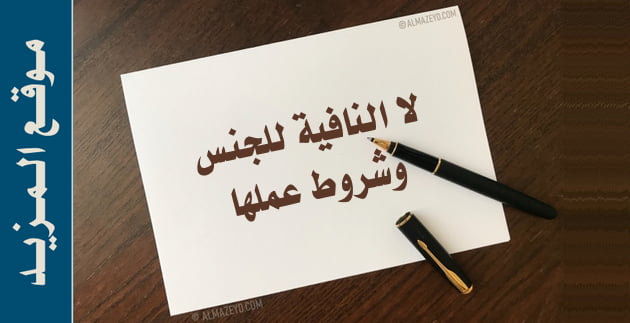 © ALMAZEYD.COM
لا النافية للجنس
وشروط عملها
© ALMAZEYD.COM
موقع المزيد